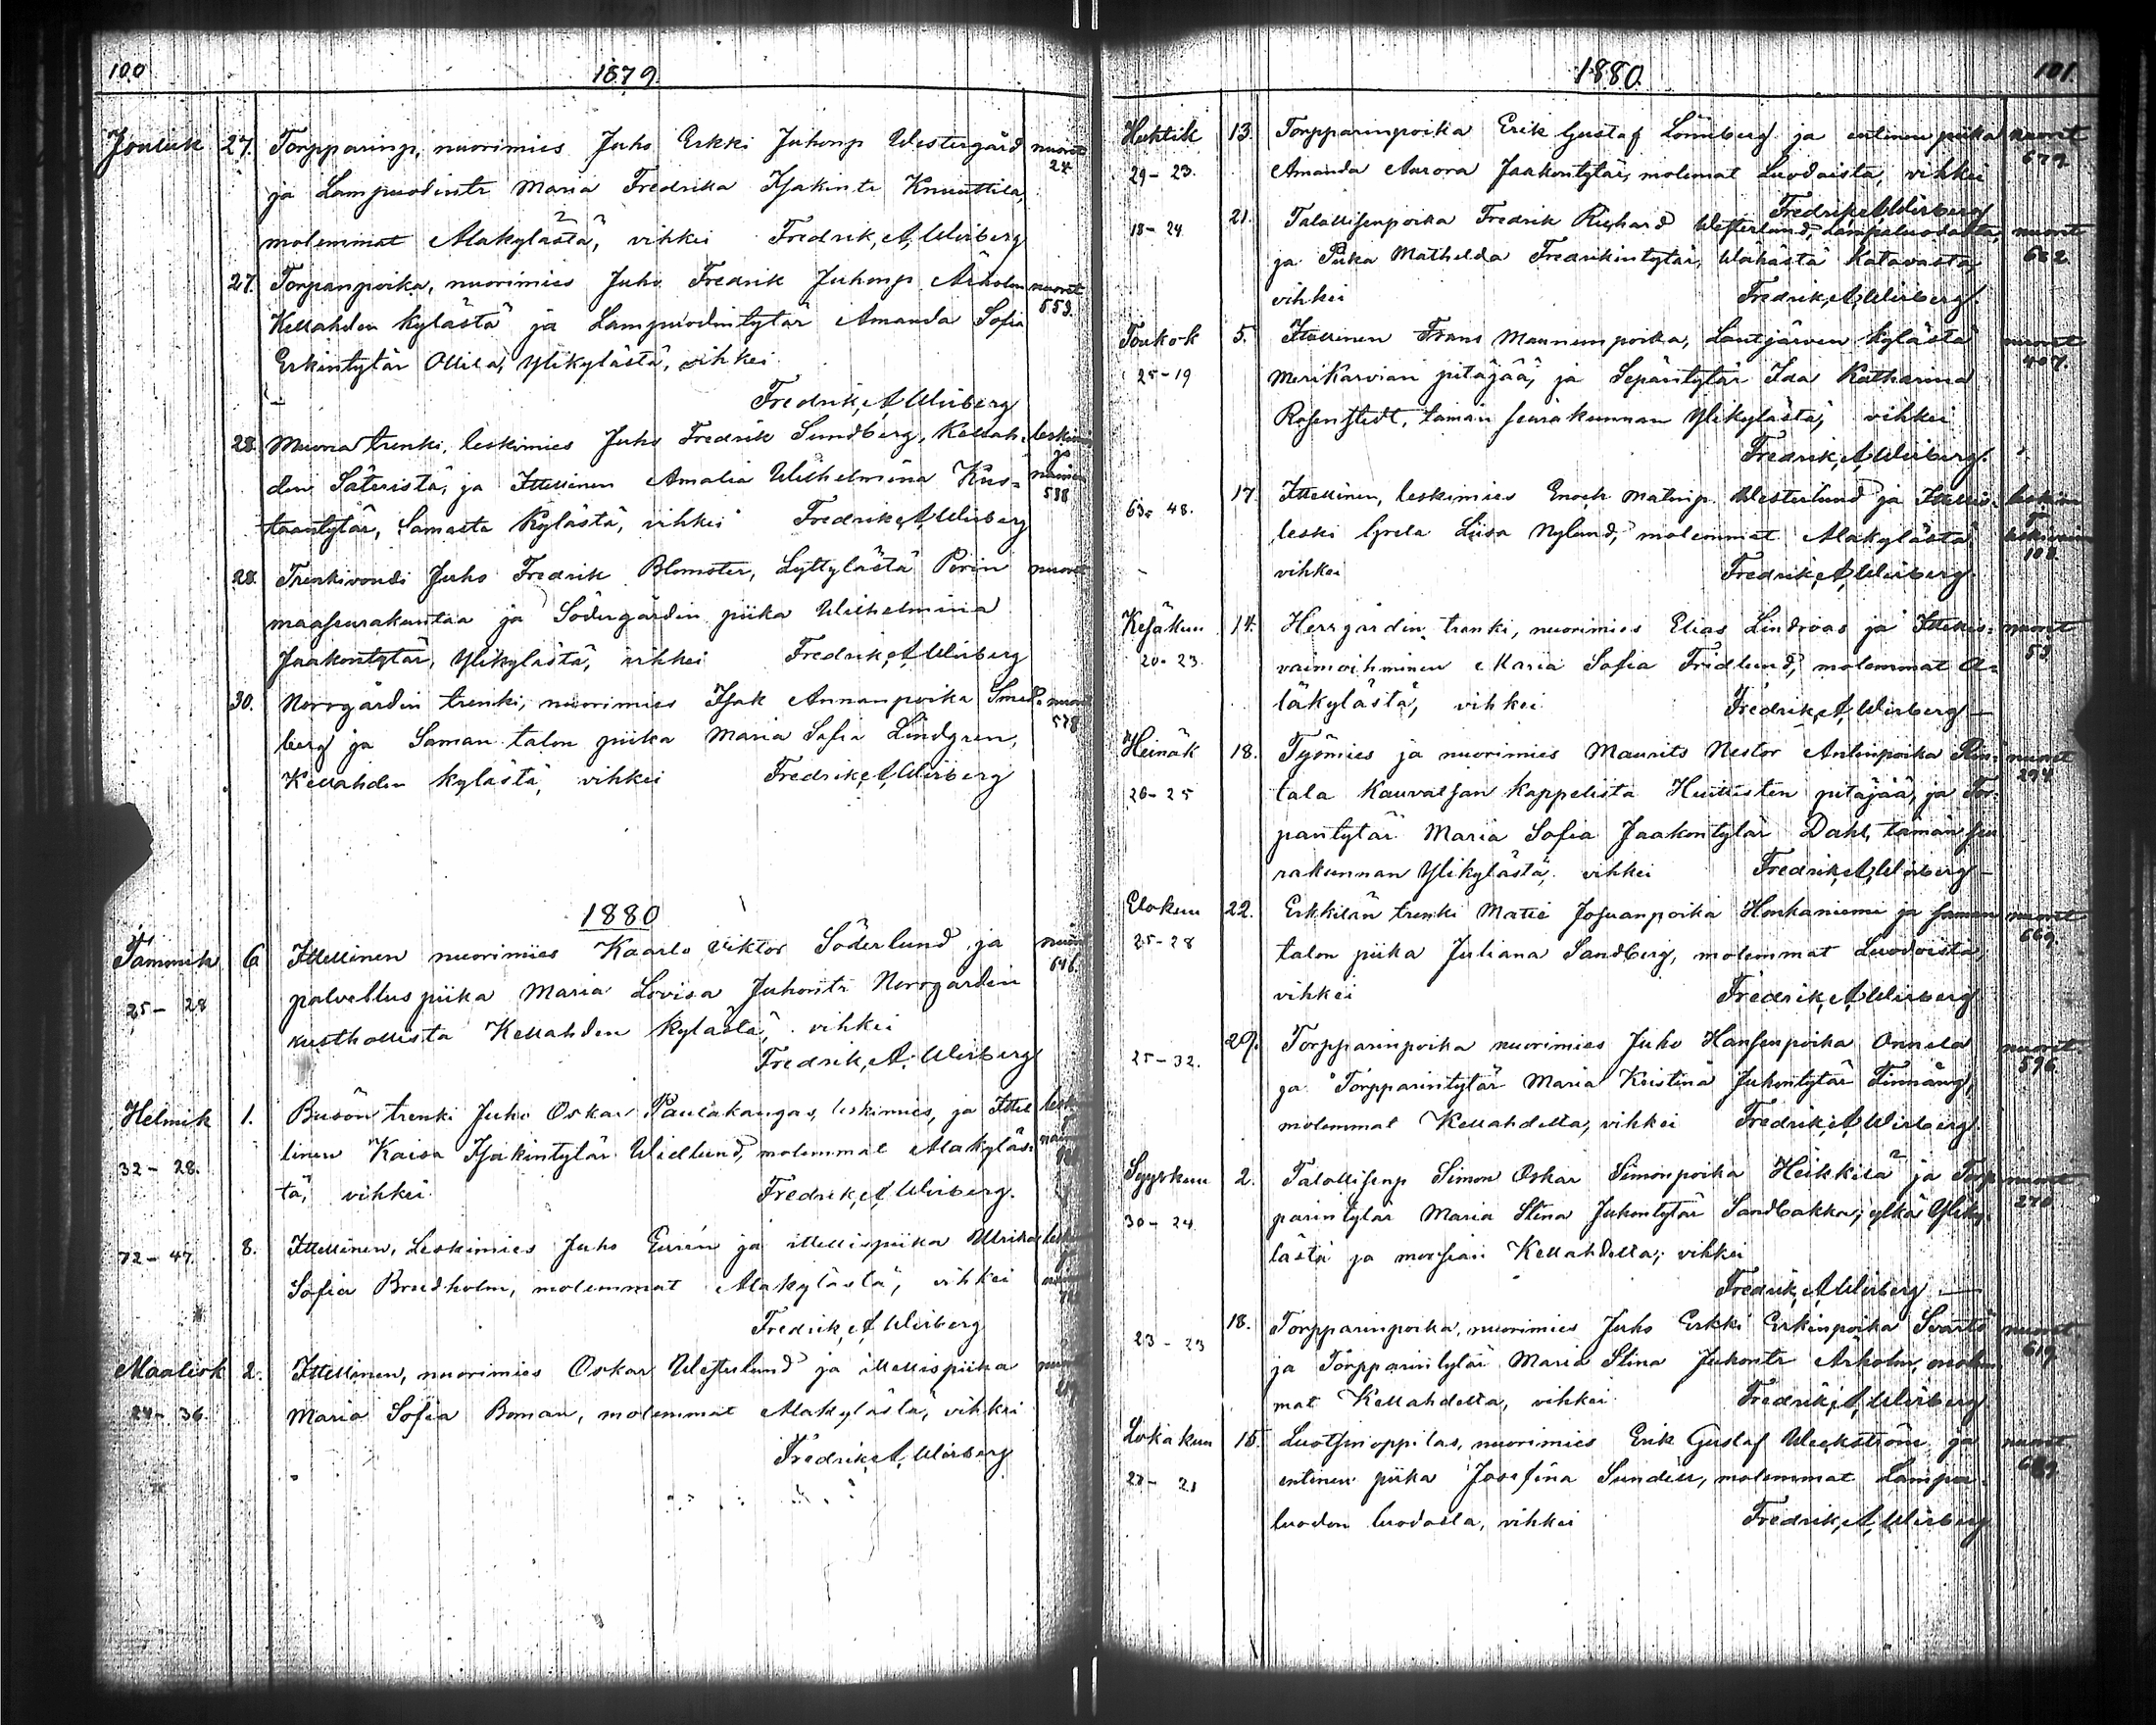 100
1879.
Jouluk 27. Torpparinp. nuorimies Juho Erkki Juhonp Westergård nuoret 24
ja Lampuodintr Maria Fredrika Isakintr Knuuttila,
molemmat Alakylästä, vihkei Fredrik, A, Wirberg
27. Torpanpoika, nuorimies Juho Fredrik Juhonp Arholm nuoret 553.
Kellahden kylästä ja Lampuodintytär Amanda Sofia
Erkintytär Ollila, Ylikylästä, vihkei
Fredrik, A Wirberg
28. Muorea trenki, leskimies Juho Fredrik Sundberg, Kellah- leskim ja
den Säteristä, ja Ittellinen Amalia Wilhelmina Kus- 538
taantytär, Samasta kylästä, vihkei Fredrik, A, Wirberg
28. Trenkivouti Juho Fredrik Blomster, Lyttylästä Porin nuoret
maaseurakuntaa ja Södergårdin piika Wilhelmina
Jaakontytär, Ylikylästä, vihkei Fredrik, A, Wirberg
30. Norrgårdin trenki, nuorimies Isak Annanpoika Smel- nuoret
berg ja Saman talon piika Maria Sofia Lindgren, 578
Kellahden kylästä, vihkei Fredrik, A, Wirberg
1880
Tammik 6 Ittellinen nuorimies Kaarlo Viktor Söderlund ja
25-28 palvellus piika Maria Lovisa Juhontr Norrgårdin 646.
rusthollista Kellahden kylästä, vihkei
Fredrik, A, Wirberg
Helmik 1. Busön trenki Juho Oskar Paulakangas, leskimies, ja Ittel
32-28. linen Kaisa Isakintytär Widlund, molemmat Alakyläs-
tä, vihkei Fredrik, A, Wirberg.
72-47. 8. Ittellinen, Leskimies Juho Eurén ja ittellispiika Ulrika
Sofia Bredholm, molemmat Alakylästä, vihkei
Fredrik, A, Wirberg
Maalisk 2. Ittellinen, nuorimies Oskar Westerlund ja ittellispiika
24-36. Maria Sofia Boman, molemmat Alakylästä, vihkei
Fredrik, A, Wirberg
1880.
101.
Huhtik 13. Torpparinpoika Erik Gustaf Lönnberg ja entinen piika nuoret
29-23. Amanda Aurora Jaakontytär, molemat Luodoista, vihkei 679.
Fredrik, A, Wirberg
18-24. 21. Talollisenpoika Fredrik Rickard Westerlund, Lampaluodosta, nuoret
ja Piika Mathelda Fredrikintytär, Wähästä Katavasta, 682.
vihkei Fredrik, A, Wirberg.
Toukok 5. Ittellinen Frans Maununpoika, Lautjärven kylästä nuoret
25-19 Merikarvian pitäjää, ja Sepäntytär Ida Katharina 407.
Rosenstedt, tämän seurakunnan Ylikylästä, vihkei
Fredrik, A, Wirberg.
63-48. 17. Ittellinen, leskimies Enoch Matinp. Westerlund ja Ittellis- leskim
leski Greta Liisa Nylund, molemmat Alakylästä 108.
vihkei Fredrik, A, Wirberg
Kesäkuu 14. Herrgårdin trenki, nuorimies Elias Lindroos ja Ittellis- nuoret
20-23. vaimoihminen Maria Sofia Fridlund, molemmat A- 53.
lakylästä, vihkei Fredrik, A, Wirberg
Heinäk 18. Työmies ja nuorimies Maurits Nestor Antinpoika Rin- nuoret
26-25 tala Kauvatsan kappelista Huittisten pitäjää, ja Tor- 294
pantytär Maria Sofia Jaakontytär Dahl, tämän seu
rakunnan Ylikylästä, vihkei Fredrik, A, Wirberg
Elokuu 22. Erkkilän trenki Matti Josuanpoika Honkaniemi ja saman nuoret
25-28 talon piika Juliana Sandberg, molemmat Luodoista, 669.
vihkei Fredrik, A, Wirberg
25-32. 29. Torpparinpoika nuorimies Juho Hansenpoika Onnela nuoret.
ja Torpparintytär Maria Kristina Juhontytär Finnäng, 596
molemmat Kellahdella, vihkei Fredrik, A, Wirberg
Syyskuu 2. Talollisenp Simon Oskar Simonpoika Heikkilä ja Torp nuoret
30-24. parintytär Maria Stina Juhontytär Sandbakka; ylkä Yliky- 270
lästä ja morsian Kellahdella; vihkei
Fredrik, A, Wirberg
23-23 18. Torpparinpoika, nuorimies Juho Erkki Erkinpoika Svartö nuoret
ja Torpparintytär Maria Stina Juhontr Arholm, molem 619
mat Kellahdella, vihkei Fredrik, A, Wirberg
Lokakuu 15. Luotsinoppilas, nuorimies Erik Gustaf Weckström ja nuoret
28-21 entinen piika Josefina Sundell, molemmat Lampa- 689
luodon luodolla, vihkei Fredrik, A, Wirberg